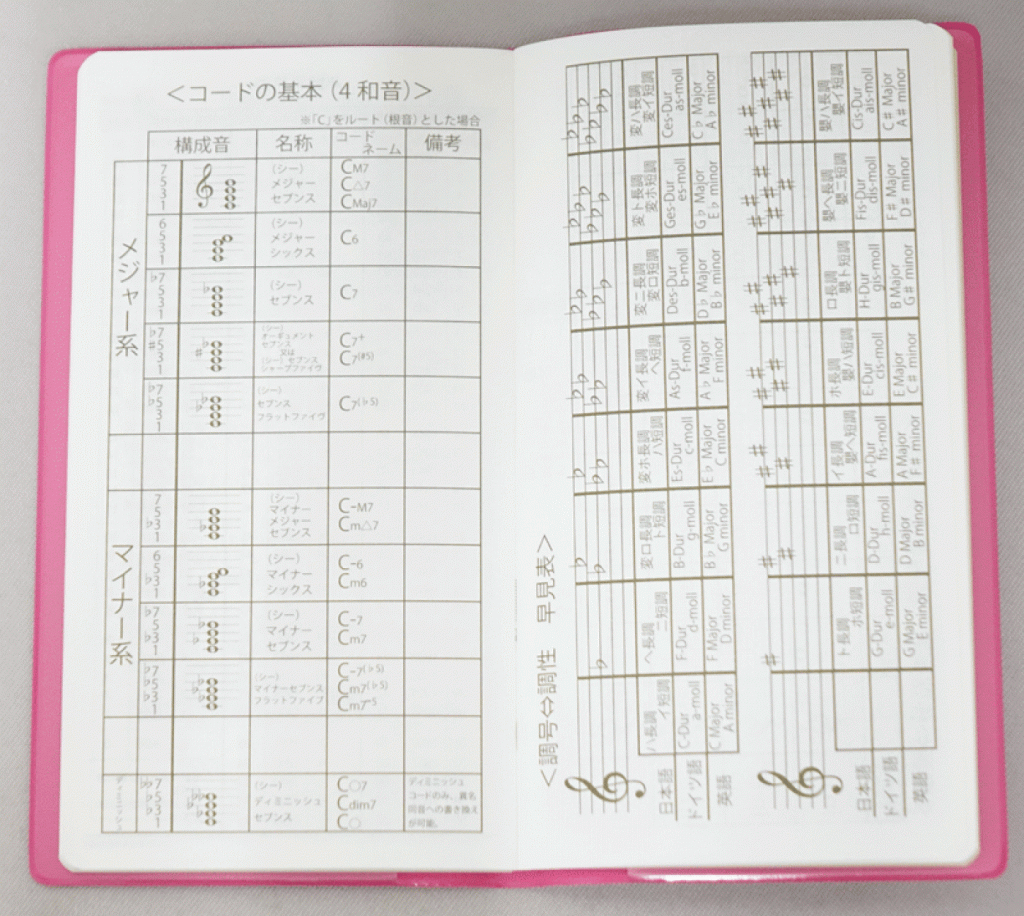 ＜コードの基本（4 和音）＞
※「C」をルート（根音）とした場合
構成音
名称
コード
ネーム
備考
メジャー系
7
5
3
1
（シー）
メジャー
セブンス
CM7
C△7
CMaj7
6
5
3
1
（シー）
メジャー
シックス
C6
♭7
5
3
1
（シー）
セブンス
C7
♭7
♯5
3
1
（シー）
オーギュメント
セブンス
又は
（シー）セブンス
シャープファイヴ
C7+
C7(♯5)
♭7
♭5
3
1
（シー）
セブンス
フラットファイヴ
C7(♭5)
マイナー系
7
5
♭3
1
（シー）
マイナー
メジャー
セブンス
C-M7
Cm△7
6
5
♭3
1
（シー）
マイナー
シックス
C-6
Cm6
♭7
5
♭3
1
（シー）
マイナー
セブンス
C-7
Cm7
♭7
♭5
♭3
1
（シー）
マイナーセブンス
フラットファイブ
C-7(♭5)
Cm7(♭5)
Cm7-5
ディミニッシュ
♭♭7
♭5
♭3
1
（シー）
ディミニッシュ
セブンス
C○7
Cdim7
C○
ディミニッシュ
コードのみ、異名
同音への書き換え
が可能。
＜調号⇔調性　早見表＞
日本語
ハ長調
イ短調
ヘ長調
ニ短調
変ロ長調
ト短調
変ホ長調
ハ短調
変イ長調
ヘ短調
変ニ長調
変ロ短調
変ト長調
変ホ短調
変ハ長調
変イ短調
ドイツ語
C-Dur
a-moll
F-Dur
d-moll
B-Dur
g-moll
Es-Dur
c-moll
As-Dur
f-moll
Des-Dur
b-moll
Ges-Dur
es-moll
Ces-Dur
as-moll
英語
C Major
A minor
F Major
D minor
B♭ Major
G minor
E♭ Major
C minor
A♭ Major
F minor
D♭ Major
B♭ minor
G♭ Major
E♭ minor
C♭ Major
A♭ minor
日本語
ト長調
ホ短調
ニ長調
ロ短調
イ長調
嬰ヘ短調
ホ長調
嬰ハ短調
ロ長調
嬰ト短調
嬰ヘ長調
嬰ニ短調
嬰ハ長調
嬰イ短調
ドイツ語
G-Dur
e-moll
D-Dur
h-moll
A-Dur
fis-moll
E-Dur
cis-moll
H-Dur
gis-moll
Fis-Dur
dis-moll
Cis-Dur
ais-moll
英語
G Major
E minor
D Major
B minor
A Major
F♯ minor
E Major
C♯ minor
B Major
G♯ minor
F♯ Major
D♯ minor
C♯ Major
A♯ minor